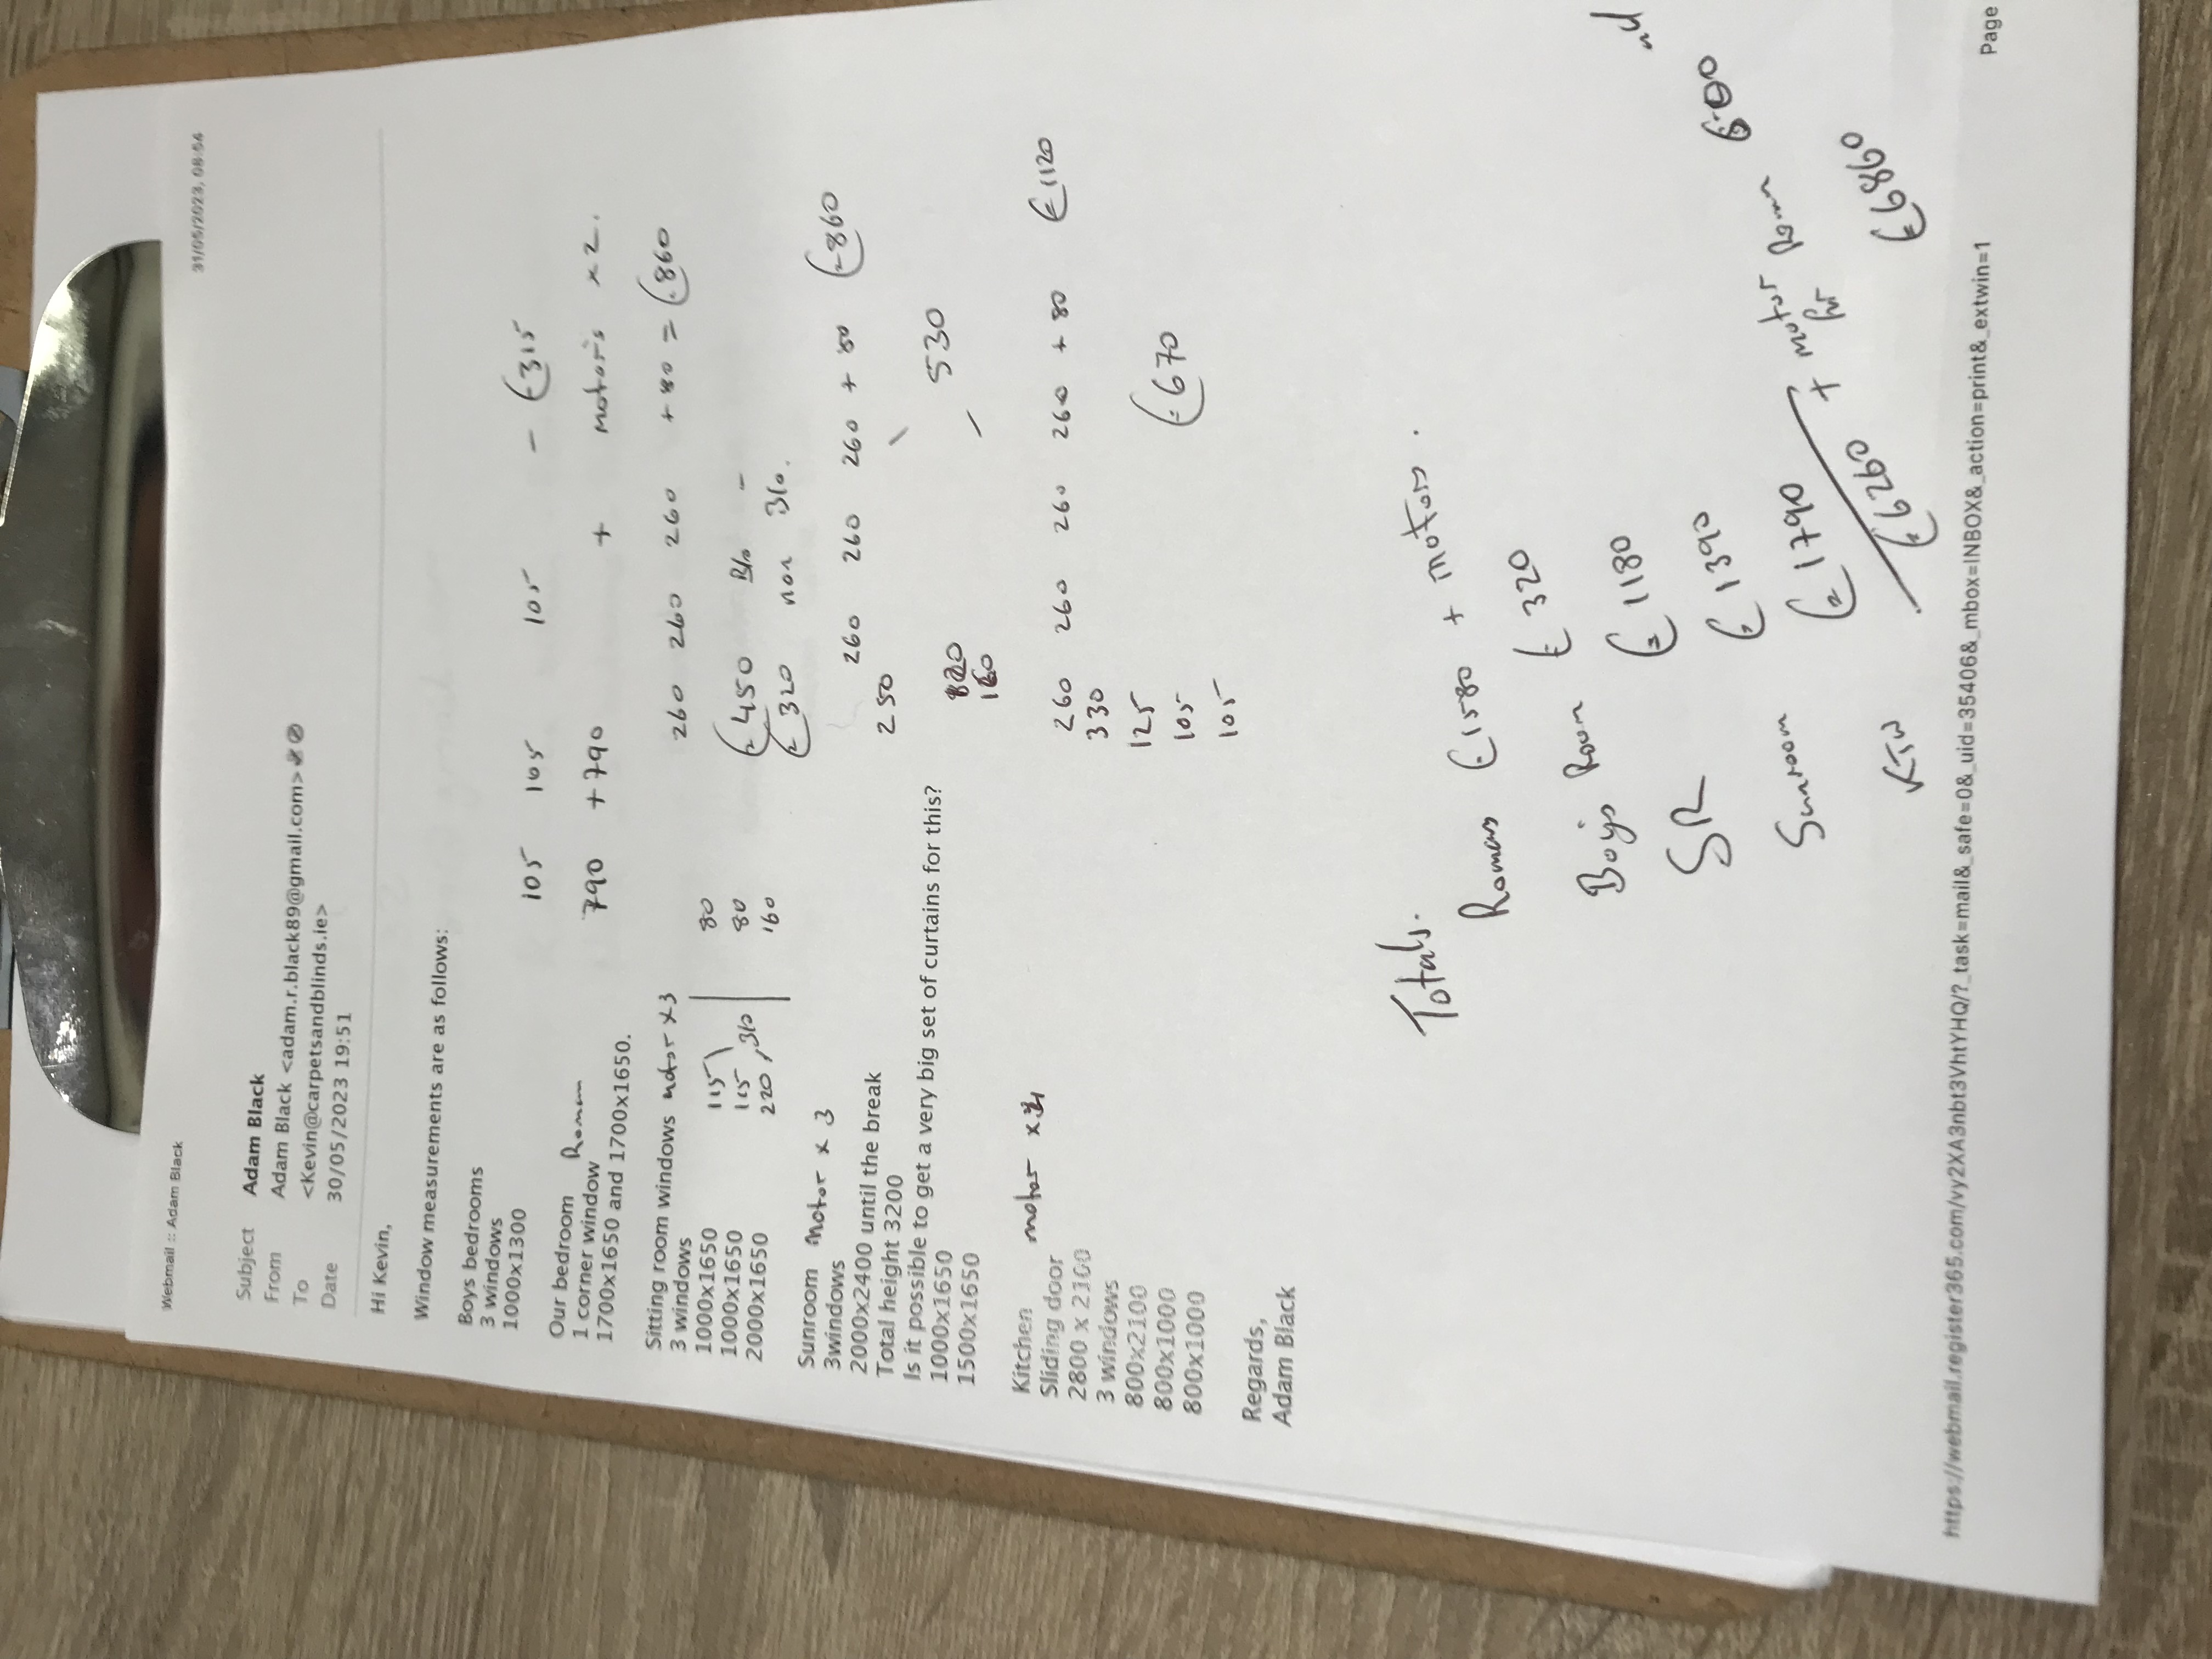 Webmail :: Adam Black
31/05/2023, 08:54
Subject Adam Black
From Adam Black <adam.r.black89@gmail.com>
To <Kevin@carpetsandblinds.ie>
Date 30/05/2023 19:51
Hi Kevin,
Window measurements are as follows:
Boys bedrooms
3 windows
1000x1300 105 105 105 - €315
Our bedroom Roman
1 corner window
1700x1650 and 1700x1650. 790 + 790 + motors x2.
Sitting room windows motor x3
3 windows 260 260 260 260 + 80 = €860
1000x1650 115 80
1000x1650 115 80 €450 Blo -
2000x1650 220, 310 160 €320 non 310.
Sunroom motor x 3
3windows
2000x2400 until the break 260 260 260 260 + 80 €860
Total height 3200 250
Is it possible to get a very big set of curtains for this?
1000x1650 - 530
1500x1650 160
Kitchen motor x
Sliding door
2800 x 2100 260 260 260 260 + 80 €1120
3 windows 330
800x2100 125
800x1000 105 €670
800x1000 105
Regards,
Adam Black
Totals.
Romans €1580 + motors.
€320
Boys Room €1180
SR €1390
Sunroom €1790 + motor for Roman 600
€6260 €6860
https://webmail.register365.com/vy2XA3nbt3VhtYHQ/?_task=mail&_safe=0&_uid=35406&_mbox=INBOX&_action=print&_extwin=1
Page